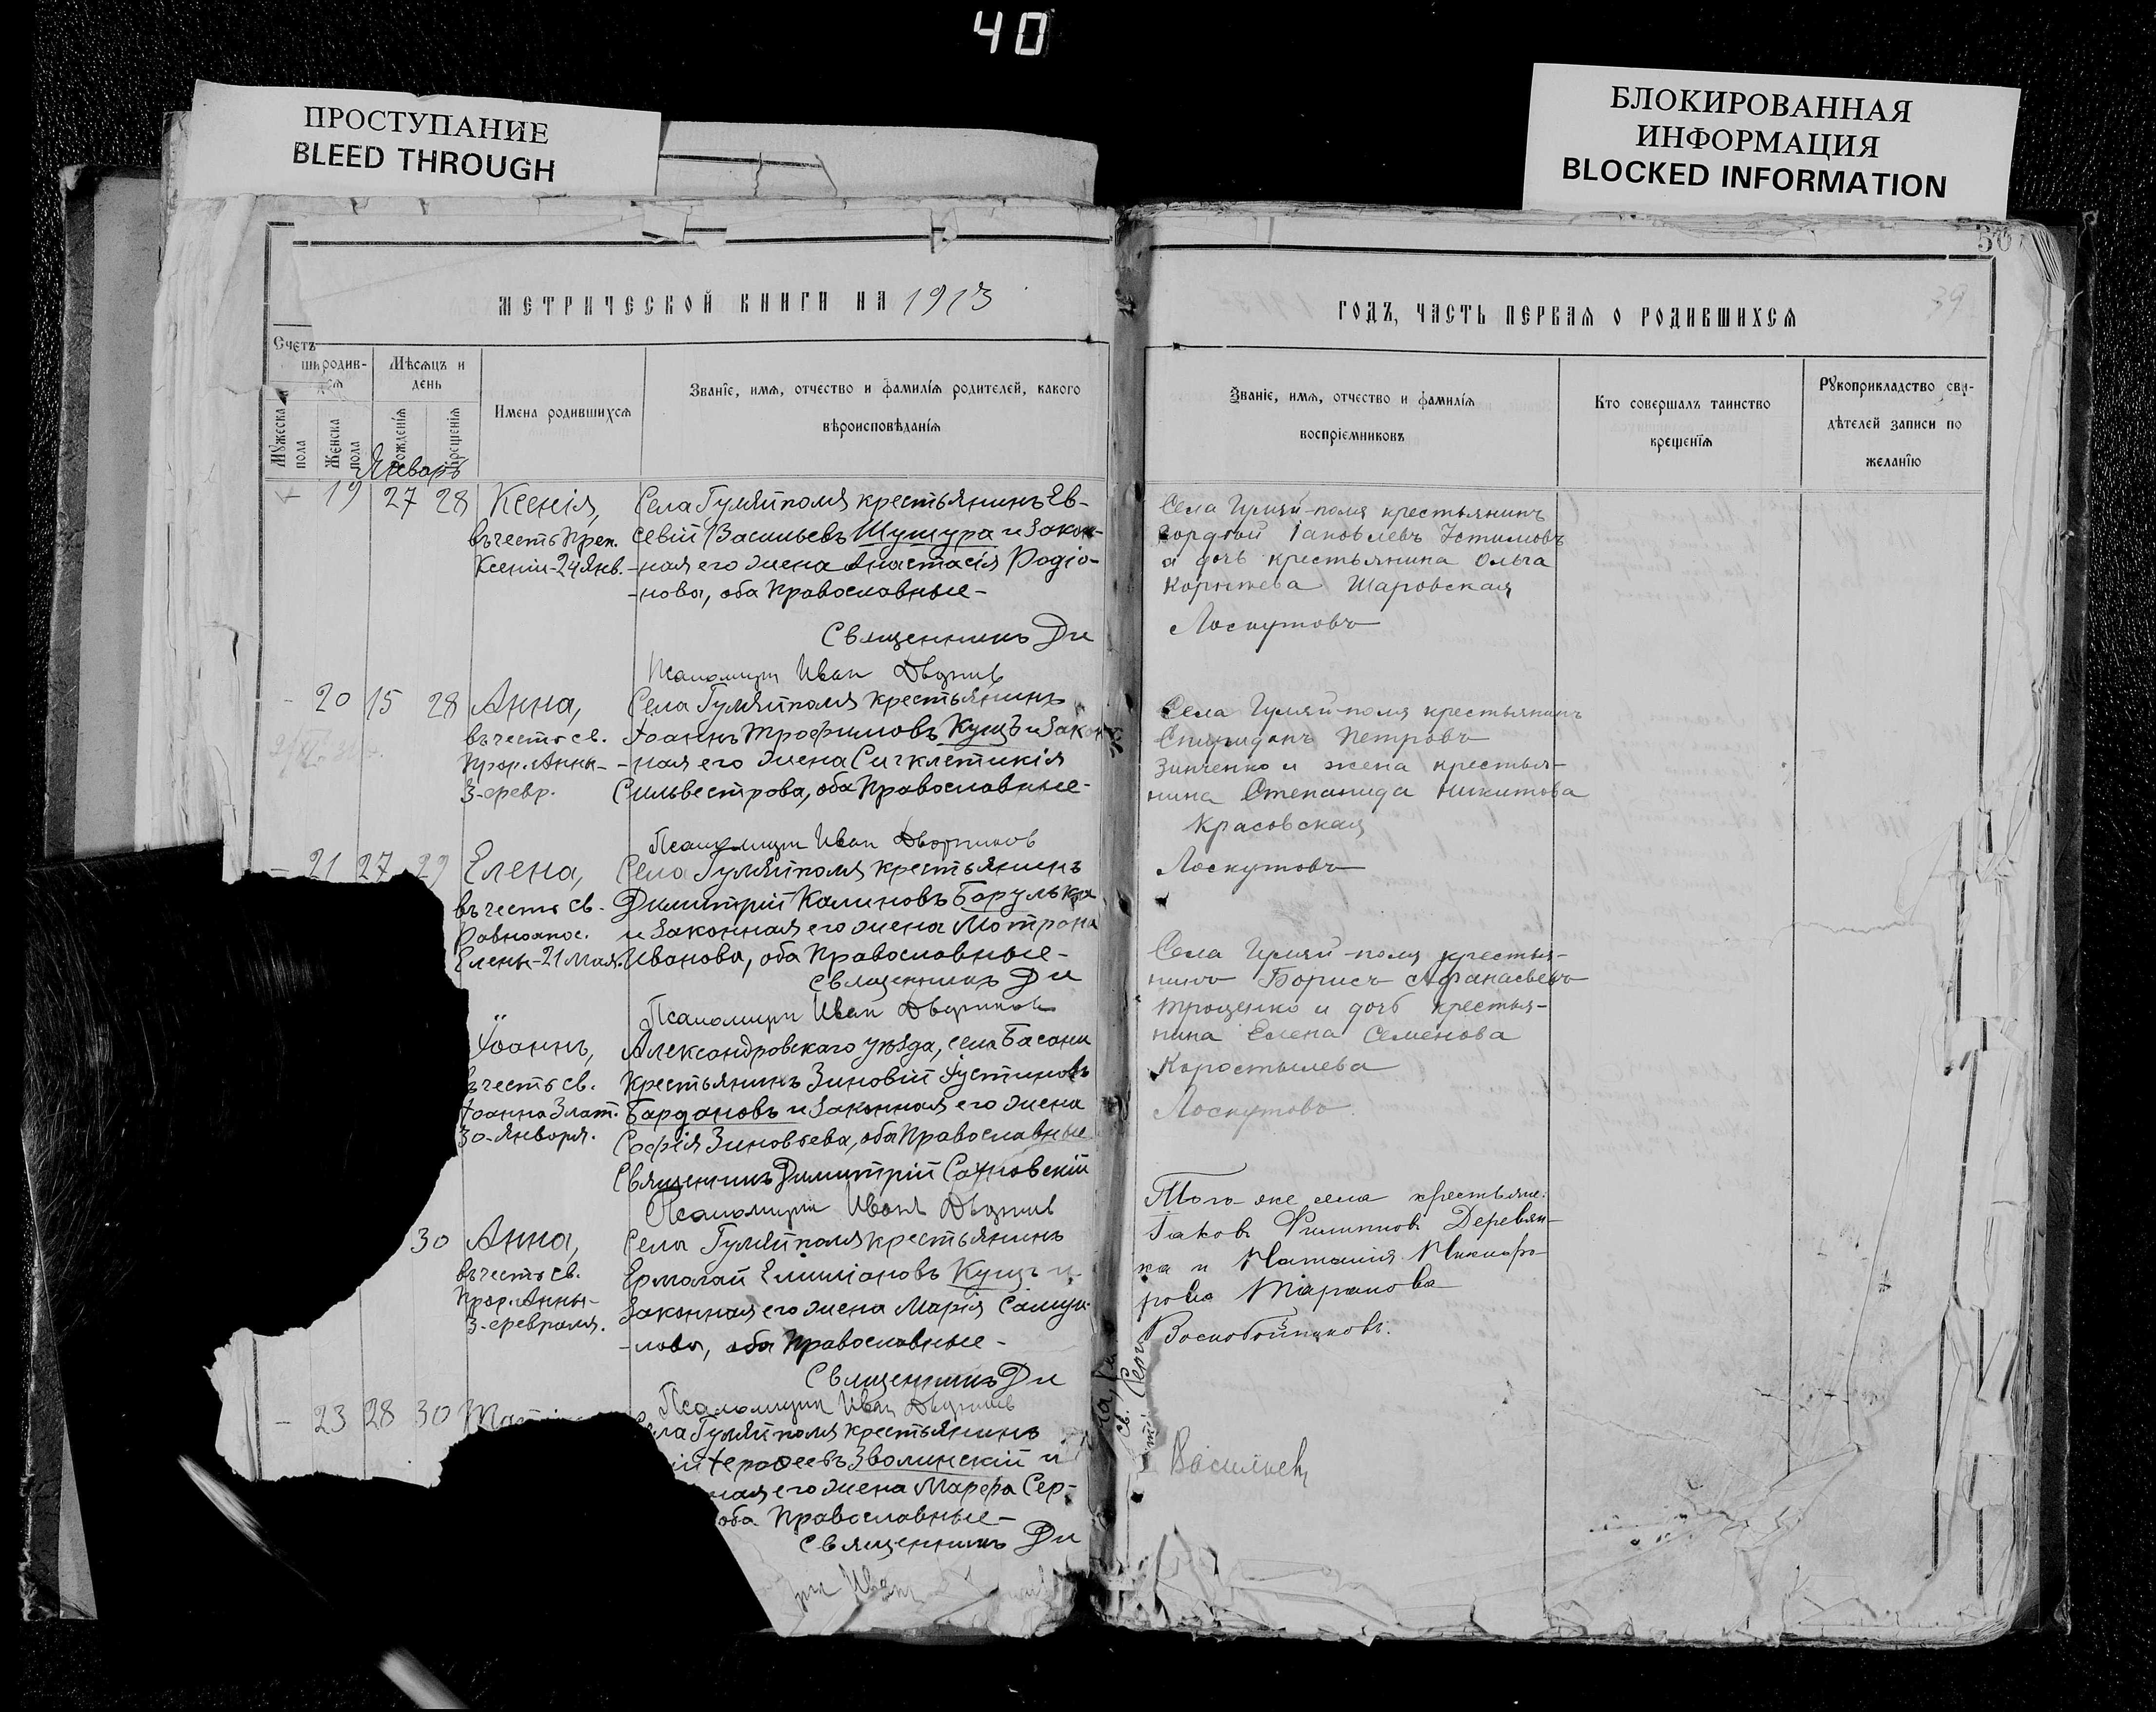 40
ПРОСТУПАНИЕ
BLEED THROUGH
БЛОКИРОВАННАЯ
ИНФОРМАЦИЯ
BLOCKED INFORMATION
МЕТРИЧЕСКОЙ КНИГИ НА 1913
Счетъ
родив-
ся
Мѣсяцъ и
день
Мужеска
пола
Женска
пола
Рожденія
Крещенія
Имена родившихся
Званіе, имя, отчество и фамилія родителей, какого
вѣроисповѣданія
Январь
19 27 28 Ксенія, Села Гуляйполя крестьянинъ Ев-
въ честь Преп. севій Васильевъ Шушура и закон-
Ксеніи-24 Янв. -ная его жена Анастасія Родіо-
-нова, оба Православные-
Священникъ Ди
Псаломщик Иван
- 20 15 28 Анна, Села Гуляйполя крестьянинъ
въ честь св. Іоаннъ Трофимовъ Кущъ и Закон
Прор. Анны- -ная его жена Сигклетикія
3-февр. Сильвестрова, оба Православные-
Псаломщик Иван Дворников
- 21 27 29 Елена, Села Гуляйполя крестьянинъ
въ честь св. Димитрій Калиновъ Барулька
Равноапос. и Законная его жена Мотрона
Елены-21 мая. Иванова, оба Православные-
Священникъ Ди
Псаломщик Иван Дворников
Іоаннъ, Александровскаго уѣзда, села Басани
въ честь св. Крестьянинъ Зиновій Іустиновъ
Іоанна Злат. Бардановъ и Законная его жена
30-Января. Софія Зиновьева, оба Православные
Священникъ Димитрій Сахновскій
Псаломщик Иван
30 Анна, Села Гуляйполя крестьянинъ
въ честь св. Ермолай Емиліановъ Кущъ и
Прор. Анны- Законная его жена Марія Самуи-
3-февраля. -лова, оба Православные-
Священникъ Ди
Псаломщик Иван
- 23 28 30 Села Гуляйполя крестьянинъ
Іерофеевъ Зволинскій и
ная его жена Марфа Сер-
оба Православные-
Священникъ Ди
Иван
ГОДЪ, ЧАСТЬ ПЕРВАЯ О РОДИВШИХСЯ
39
Званіе, имя, отчество и фамилія
воспріемниковъ
Кто совершалъ таинство
крещенія
Рукоприкладство сви-
дѣтелей записи по
желанію
Села Гуляй-поля крестьянинъ
Гордѣй Іаковлевъ Устимовъ
и дочь крестьянина Ольга
Корнѣева Шаровская
Лоскутовъ
Села Гуляй-поля крестьянинъ
Спиридонъ Петровъ
Зинченко и жена крестья-
нина Степанида Никитова
Красовская
Лоскутовъ
Села Гуляй-поля крестья-
нинъ Борисъ Афанасьевъ
Троценко и дочь крестья-
нина Елена Семенова
Коростылева
Лоскутовъ
Того-же села крестьяне:
Іаковъ Филипповъ Деревян-
ка и Наталія Никифо-
рова Таранова
Воскобойниковъ.